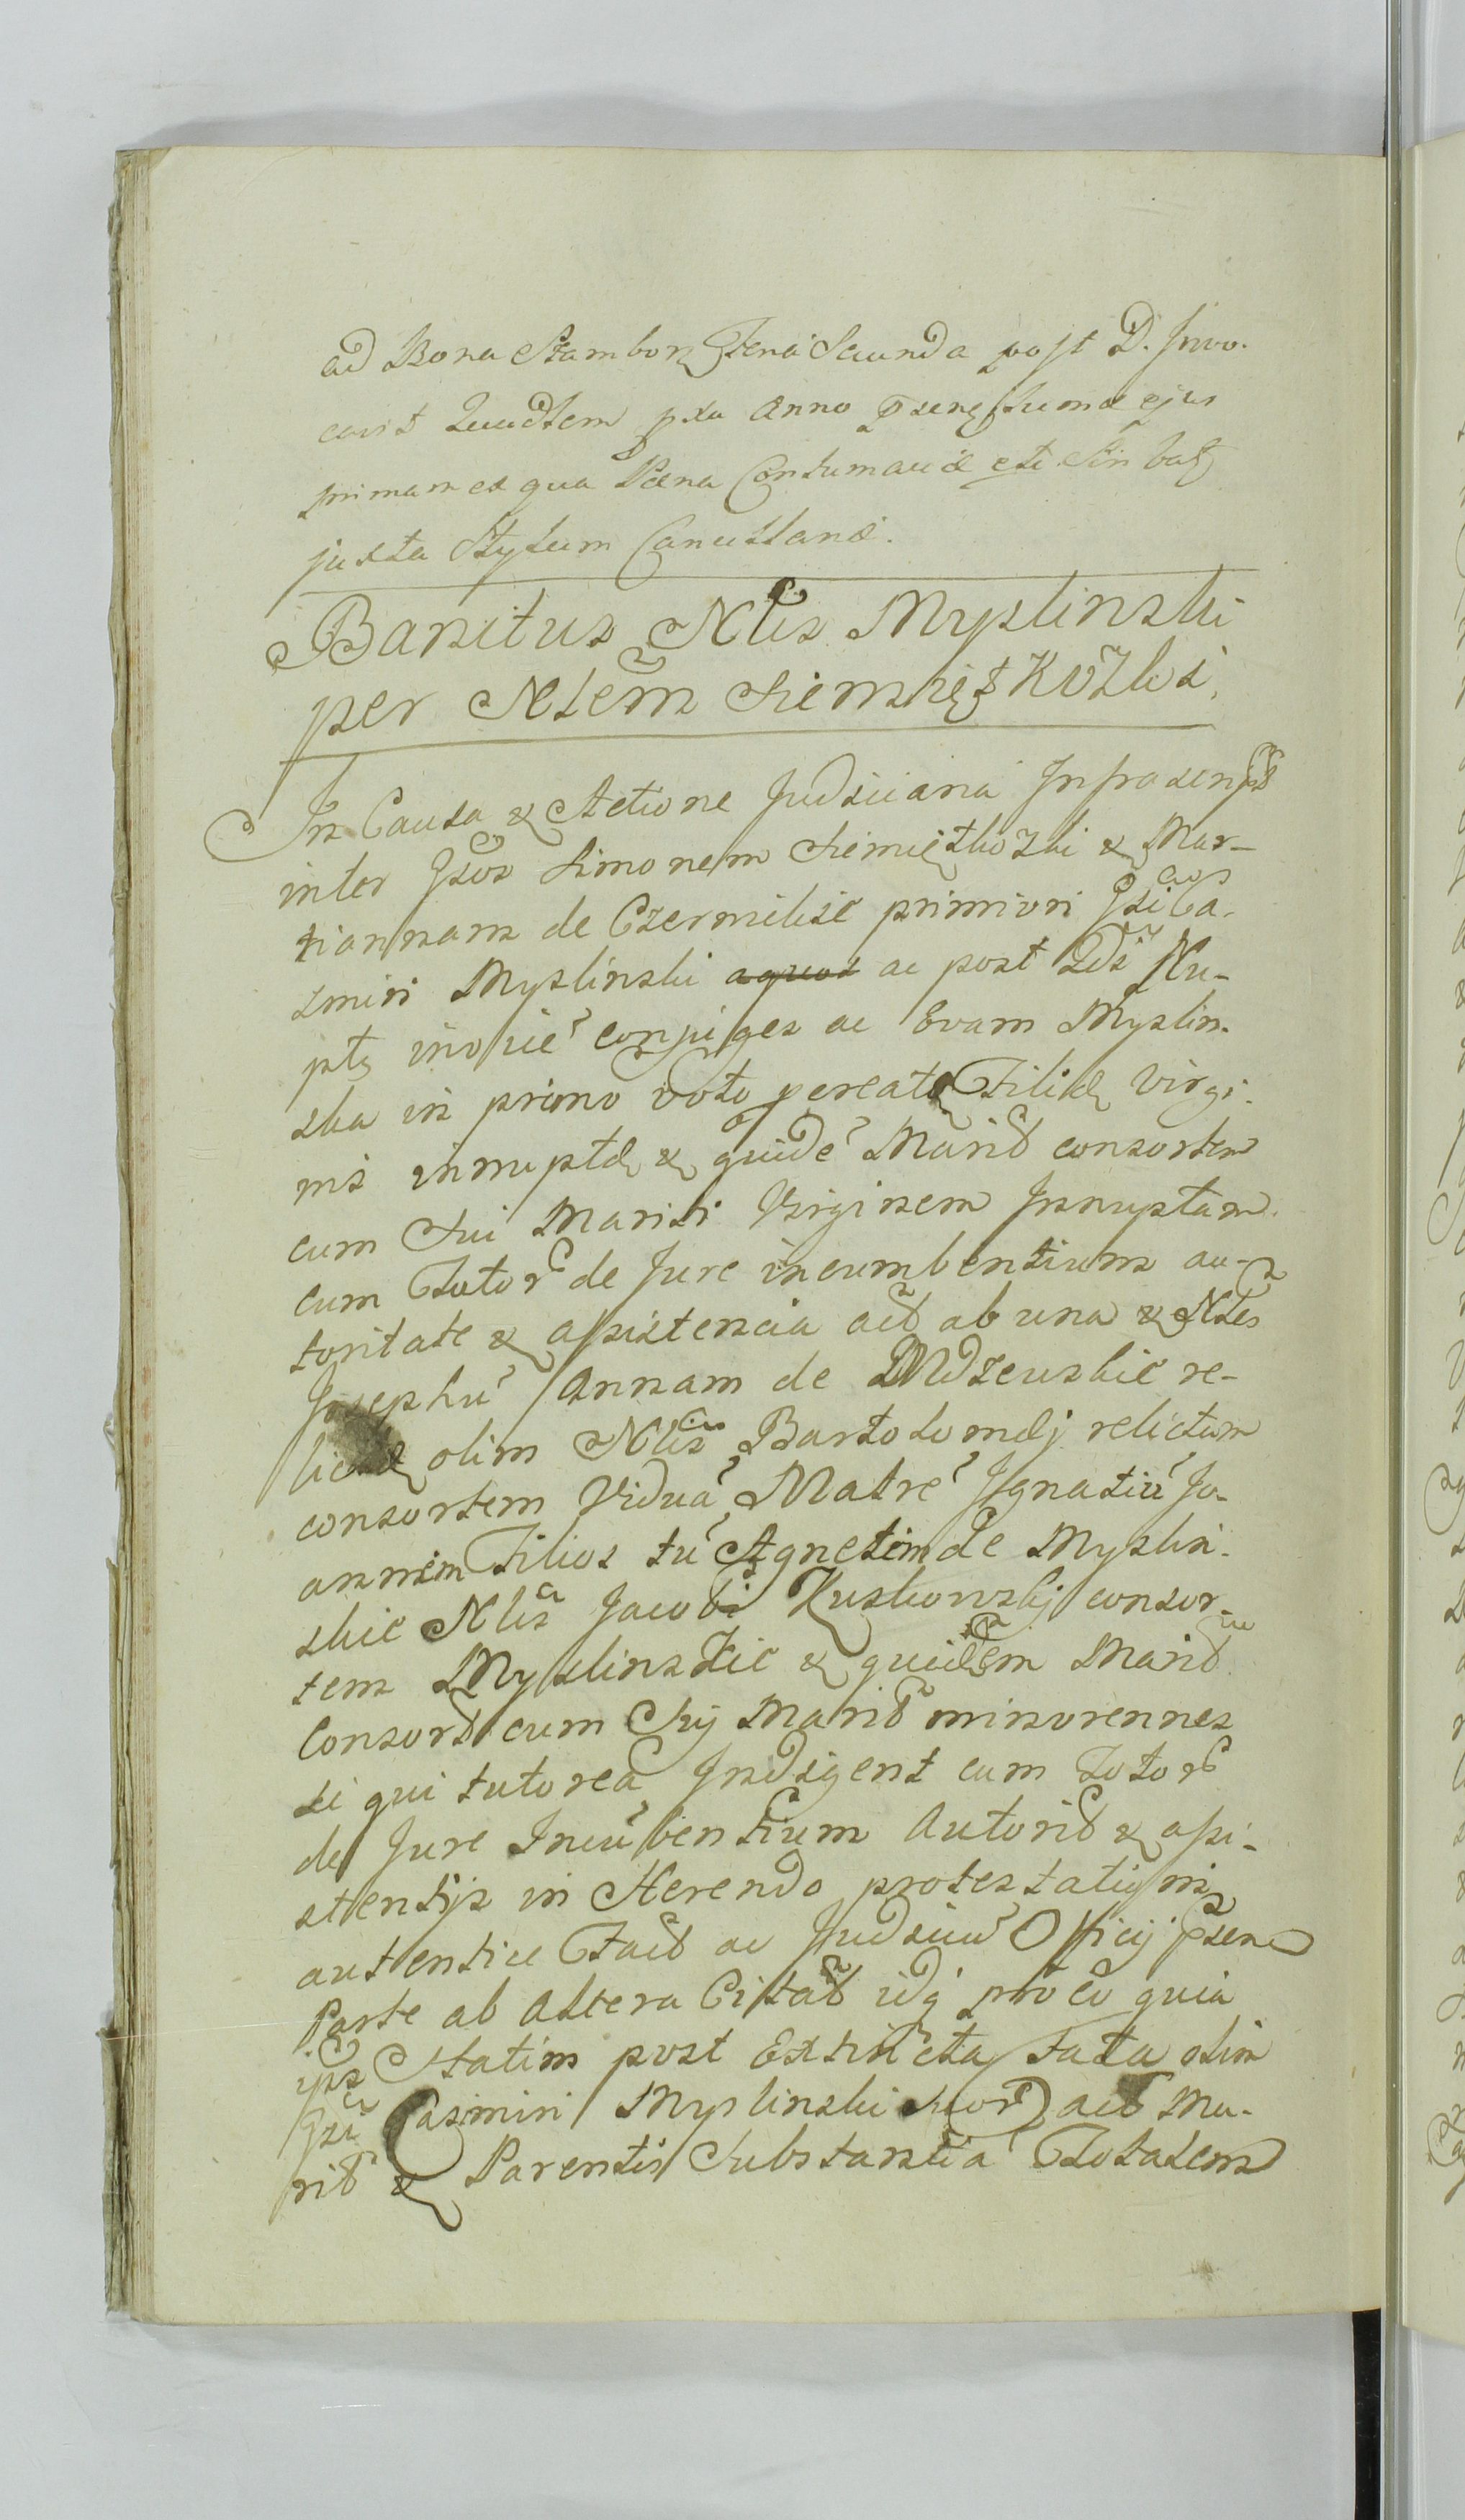 ad Bona Stambor Feria Secunda post D. Invo-
cavit Quadlem pxa Anno Psene sumae ejus
primam ex qua Paena Contumaciae
juxta Stylum Cancellariae.
Banitus Nlis Myslinski
per Nlem Siemiętkozki
In Causa & Actione Judiciaria Infrascript
inter Gsos Simonem Siemiętkozki & Mar-
riannam de Czermihsie primivori Gsi Ca-
zmiri Myslinski aquos ac post 2di Nu-
ptę invicē conjuges ac Evam Myslin-
ska in primo voto pcreatę Filię Virgi-
nis innuptę & quidē Marit consortem
cum Sui Mariti Virginem Innuptam
cum Tutor de Jure incumbentium au-
toritate & assistencia act ab una & Nles
Josephū Annam de Wdzeuskie re-
lictę olim Nlis Bartolomej relictam
consortem Viduā Matrē Ignatiū Jo-
annem Filios tū Agnetem de Myslin-
skie Nlis Jacobi Kuskowskj consor-
tem Myslinskie & quidem Marit
Consort cum Sui Marit minorennes
si qui tutorea Indigent cum Totor
de Jure Incūbentium Autorit & assi-
stentijs in Herendo protestationis
autentice Fact ac Judiciū Officij psene
Parte ab Altera Citat idq pro eo quia
ips Statim post Extincta Fata olim
Gsi Casmiri Myslinski act Ma-
rit & Parentis Substantiā Totalem